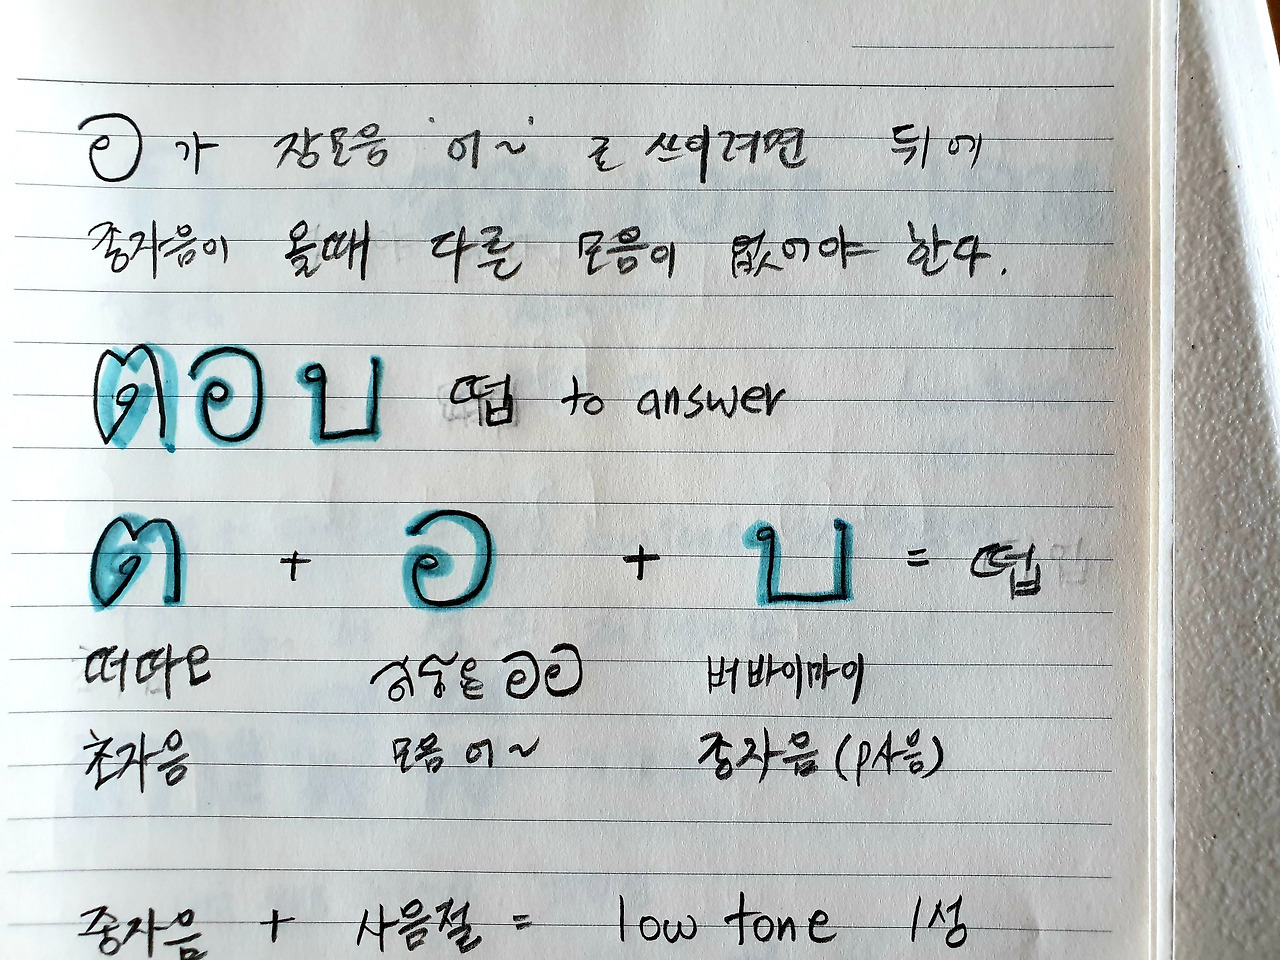 อ 가 장모음 '어~' 로 쓰이려면 뒤에
종자음이 올때 다른 모음이 없어야 한다.
ตอบ 떱 to answer
ต + อ + บ = 떱
떠따오 สระ ออ 버바이마이
초자음 모음 어~ 종자음 (p사음)
중자음 + 사음절 = low tone 1성